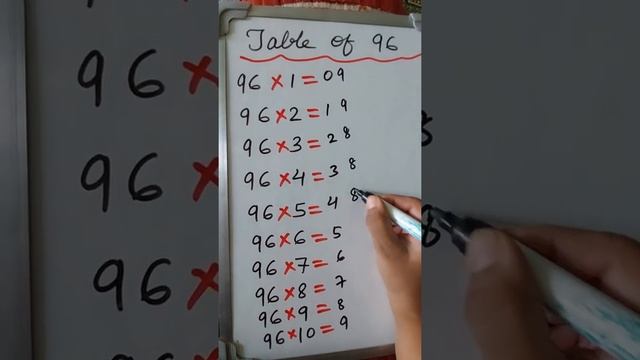 Table of 96
96 × 1 = 09
96 × 2 = 19
96 × 3 = 28
96 × 4 = 38
96 × 5 = 48
96 × 6 = 5
96 × 7 = 6
96 × 8 = 7
96 × 9 = 8
96 × 10 = 9